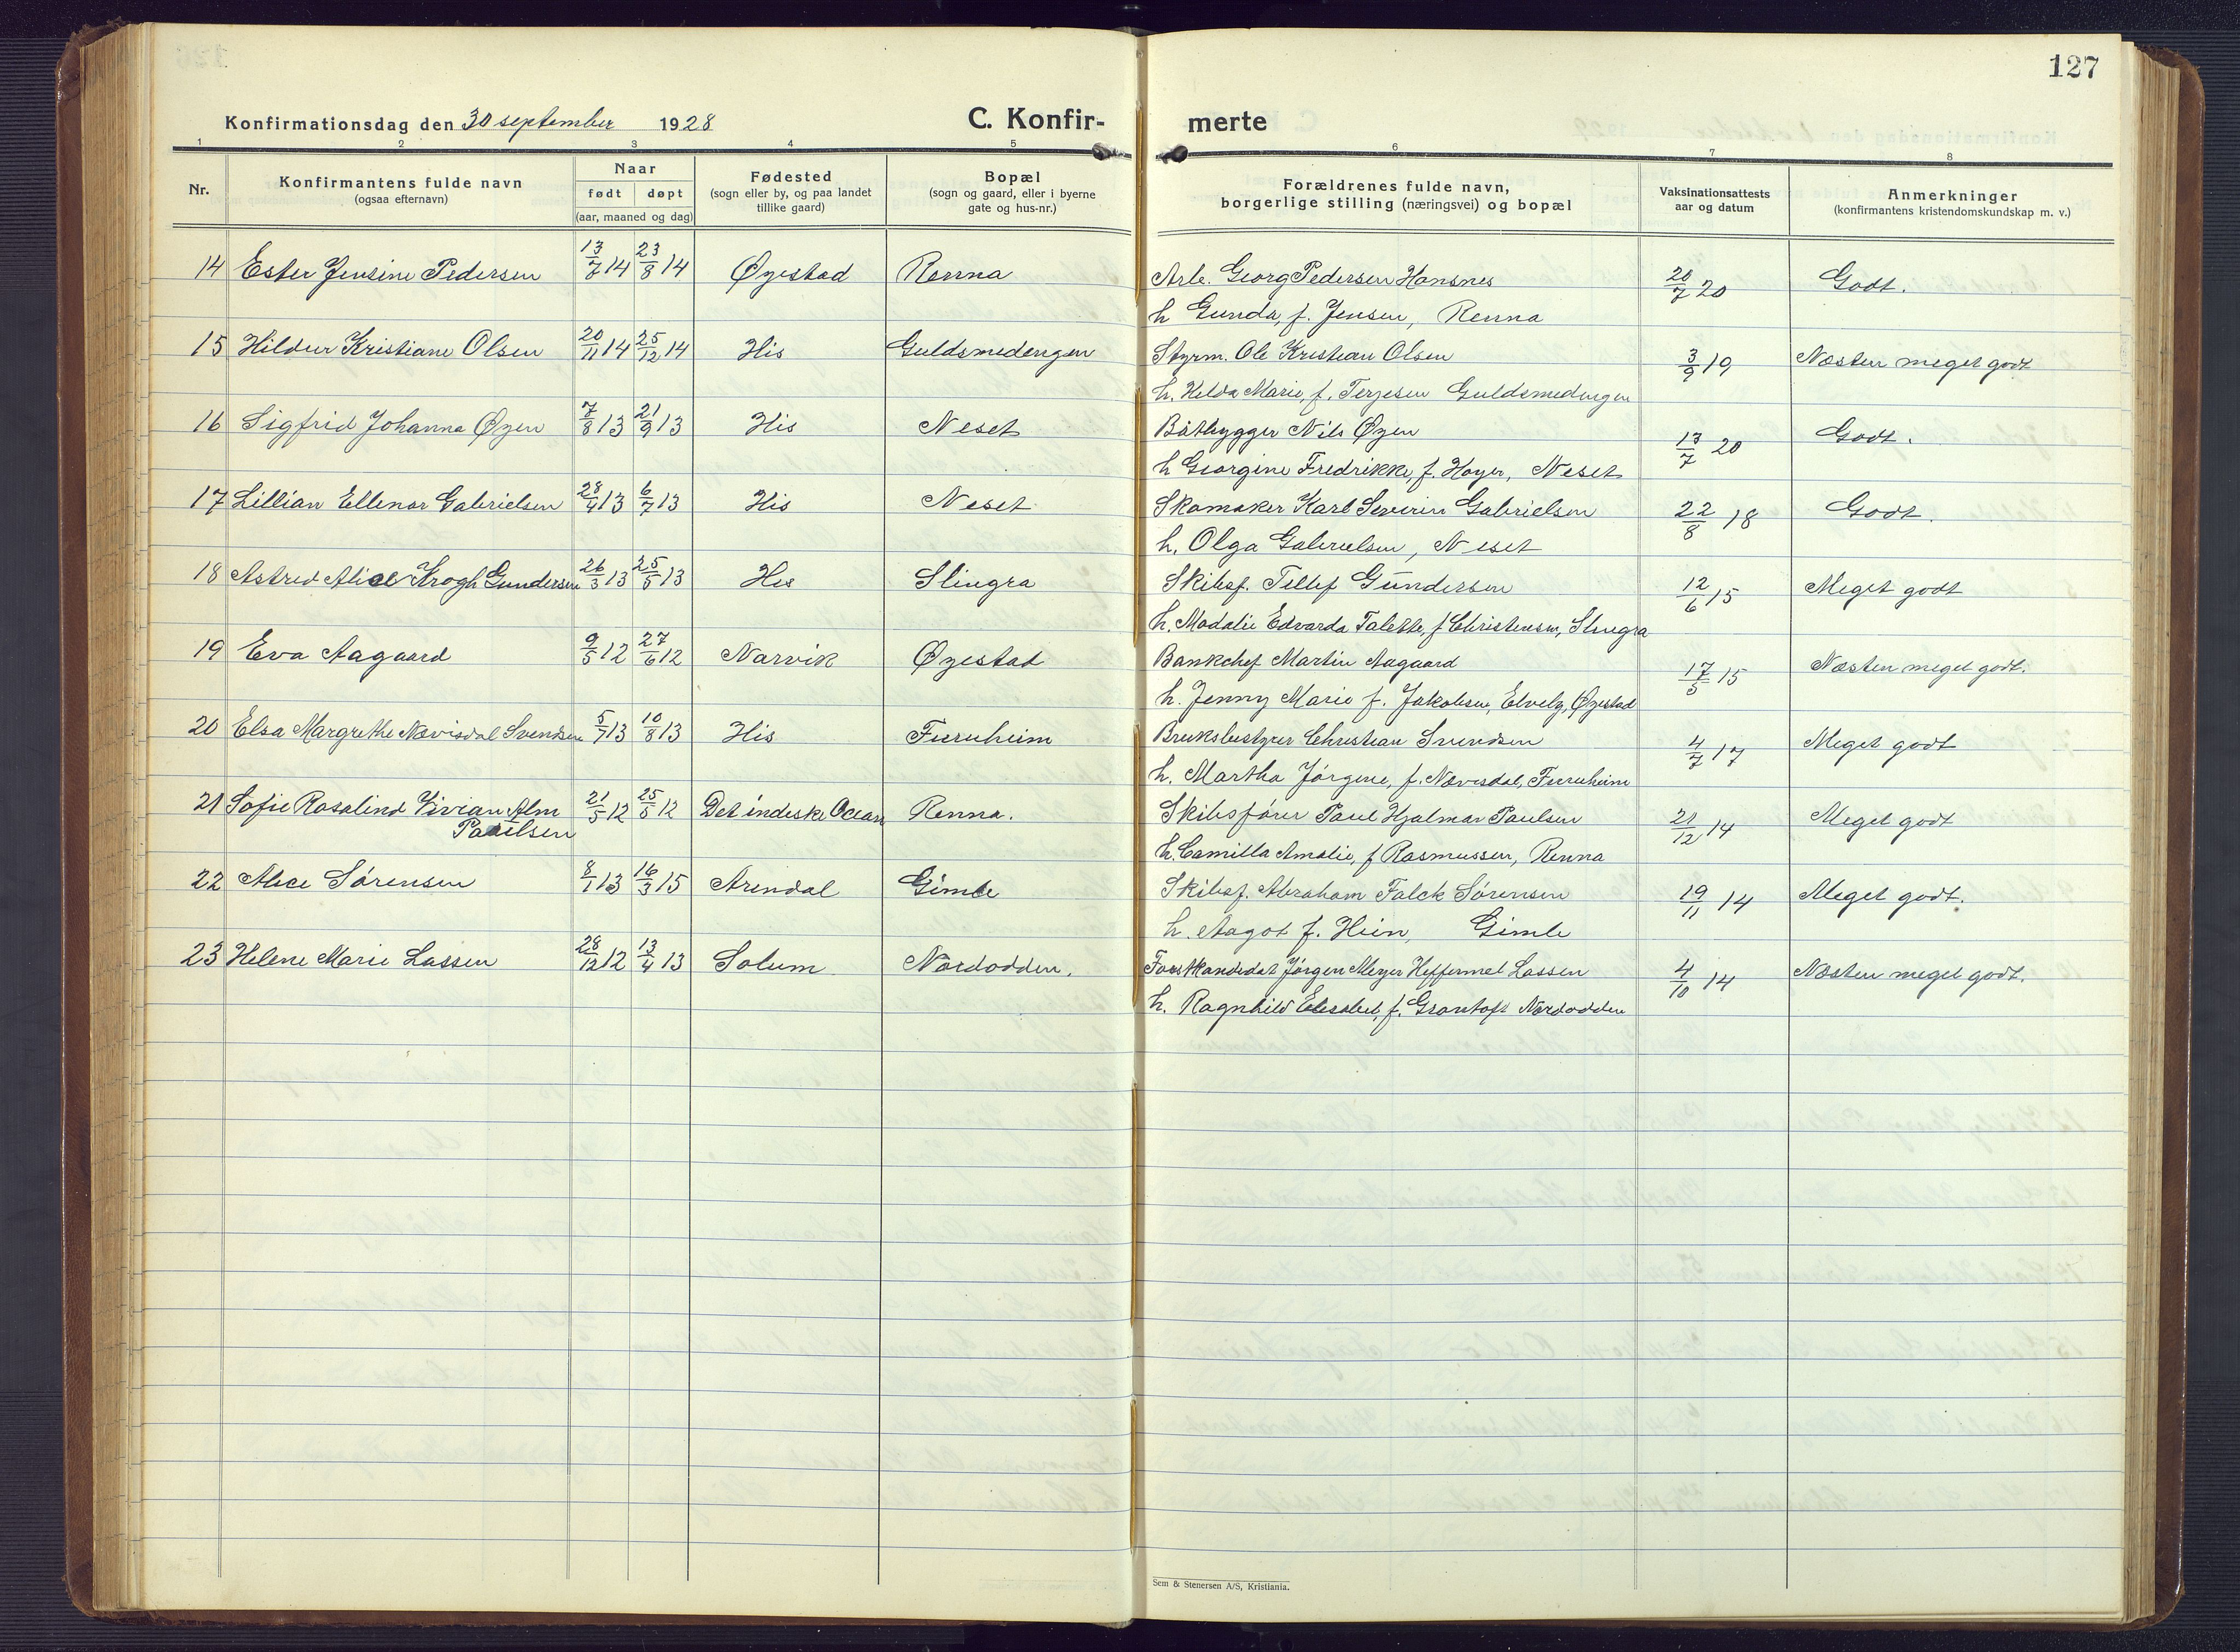 127
Konfirmationsdag den 30 september 1928
C. Konfir- merte
1 2 3 4 5 6 7 8
Nr.
Konfirmantens fulde navn
(ogsaa efternavn)
Naar
født døpt
(aar, maaned og dag)
Fødested
(sogn eller by, og paa landet
tillike gaard)
Bopæl
(sogn og gaard, eller i byerne
gate og hus-nr.)
Forældrenes fulde navn,
borgerlige stilling (næringsvei) og bopæl
Vaksinationsattests
aar og datum
Anmerkninger
(konfirmantens kristendomskundskap m. v.)
14 Ester Jensine Pedersen 13/7 14 23/8 14 Øyestad Renna Arb. Georg Pedersen Hansnes 20/7 20 Godt.
h Gunda, f. Jensen, Renna
15 Hildur Kristiane Olsen 20/11 14 25/12 14 His Guldsmedengen Styrm. Ole Kristian Olsen 3/9 19 Næsten meget godt
h. Hilda Marie, f. Terjesen Guldsmedengen
16 Sigfrid Johanna Øyen 7/8 13 21/9 13 His Neset Båtbygger Nils Øyen 13/7 20 Godt.
h Georgine Fredrikke, f. Høyer, Neset
17 Lillian Ellenor Gabrielsen 28/4 13 6/7 13 His Neset Skomaker Karl Severin Gabrielsen 22/8 18 Godt.
h. Olga Gabrielsen, Neset
18 Astrid Alice Krogh Gundersen 26/3 13 25/5 13 His Slingra Skibsf. Tellef Gundersen 12/6 15 Meget godt
h. Madalie Edvarda Talette, f Christensen, Slingra
19 Eva Aagaard 9/5 12 27/6 12 Narvik Øyestad Bankchef Martin Aagaard 17/5 15 Næsten meget godt.
h. Jenny Marie f. Jakobsen, Elvely, Øyestad
20 Elsa Margrethe Nævisdal Svendsen 5/7 13 10/8 13 His Furuheim Bruksbestyrer Christian Svendsen 4/7 17 Meget godt
h. Martha Jørgine, f. Nævisdal, Furuheim
21 Sofie Rosalind Vivian Alm 21/5 12 25/5 12 Det indeske Ocean Renna. Skibsfører Paul Hjalmar Paulsen 21/12 14 Meget godt
Paulsen
h. Camilla Amalie, f Rasmussen, Renna
22 Alice Sørensen 8/1 13 16/3 15 Arendal Gimle Skibsf. Abraham Falck Sørensen 19/11 14 Meget godt.
h. Aagot f. Hein, Gimle
23 Helene Marie Lassen 28/12 12 13/4 13 Solum Nordodden. Forstkandidat Jørgen Meyer Heffermel Lassen 4/10 14 Næsten meget godt.
h. Ragnhild Elisabet, f. Grantoft Nordodden
Sem & Stenersen A/S, Kristiania.